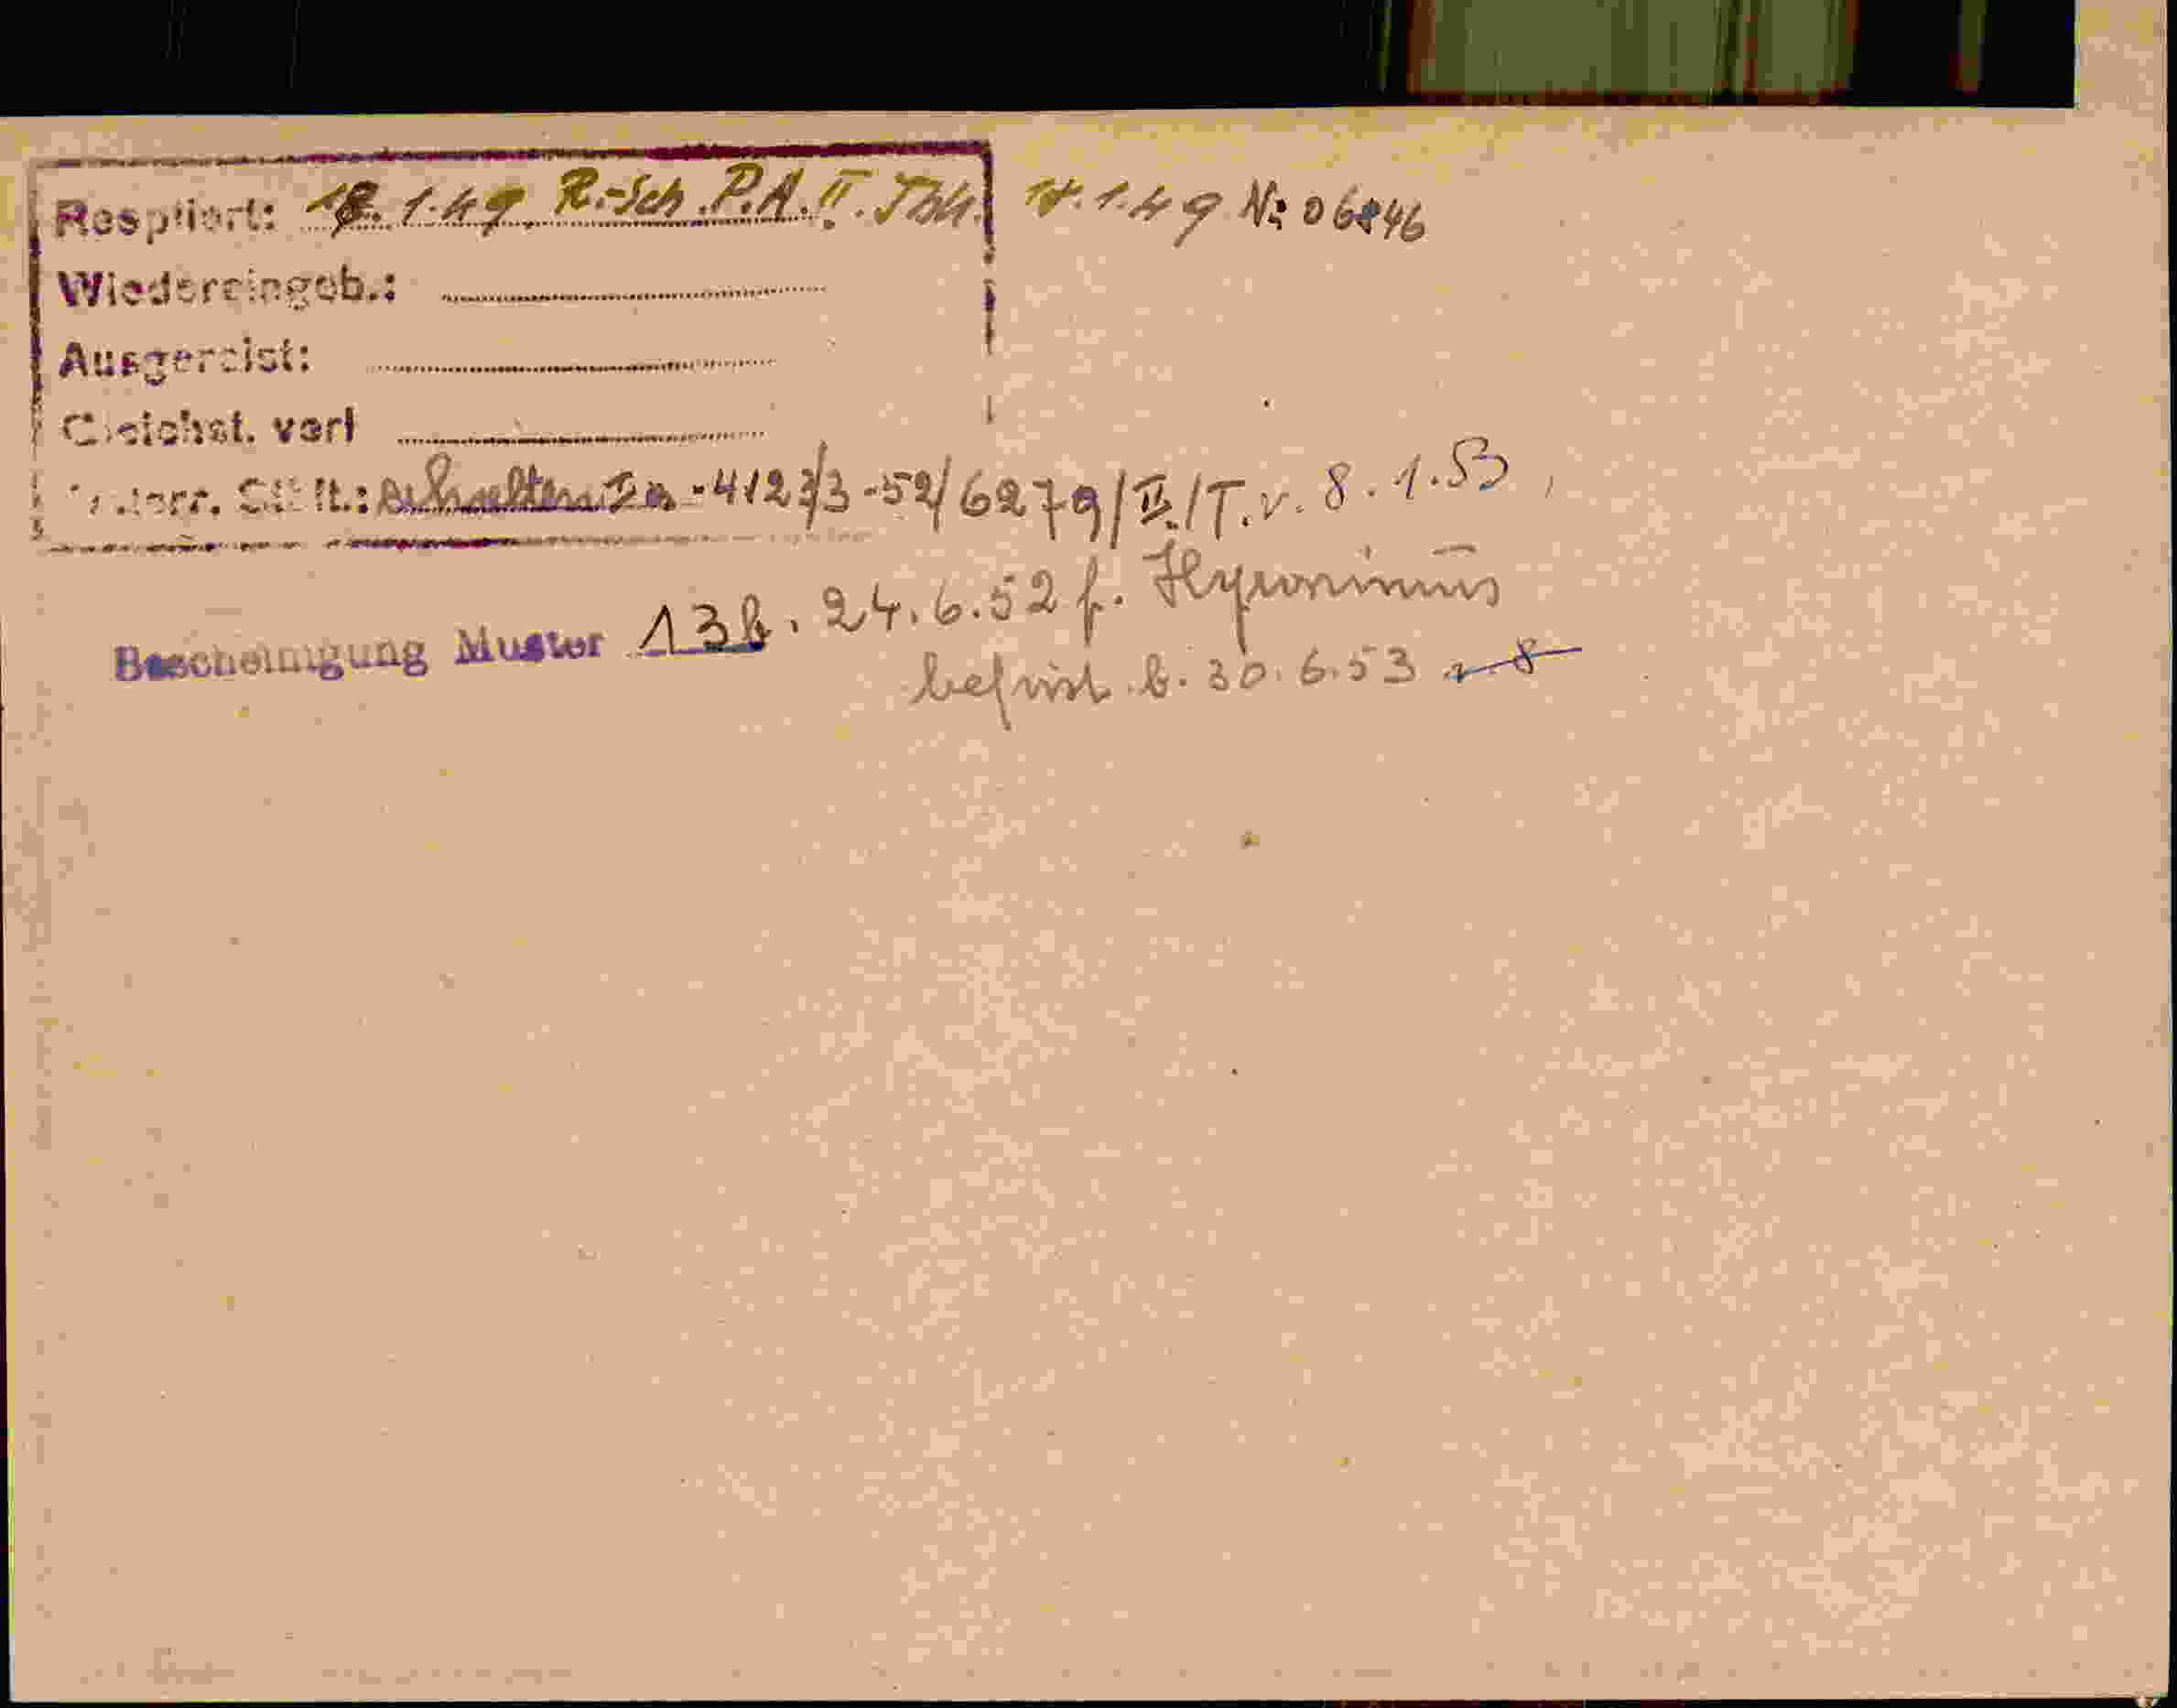 Respitiert: 18. 1. 49 R.-Sch. P.A. II. 18. 1. 49 Nr 06846
Wiedereingeb.:
Ausgereist:
Gleichst. verl
erhalten I a - 4123/3-52/6279/II./T. v. 8. 1. 53,
Bescheinigung Muster 13b. 24. 6. 52 f. Hyronimus
befrist. b. 30. 6. 53